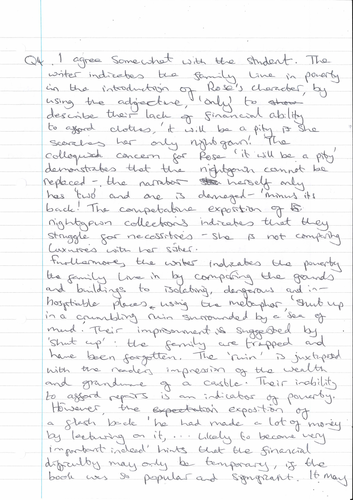 Q4. I agree somewhat with the student. The
writer indicates the family live in poverty
in the introduction of Rose's character, by
using the adjective, 'only' to
describe their lack of financial ability
to afford clothes, 'it will be a pity is she
scorches her only nightgown'. The
colloquial concern for Rose 'it will be a pity'
demonstrates that the nightgown cannot be
replaced - the narrator herself only
has 'two' and one is damaged - 'minus its
back'! The comparative exposition of
nightgown collections indicates that they
struggle for necessities - she is not comparing
luxuries with her sister.
Furthermore, the writer indicates the poverty
the family live in by comparing the grounds
and buildings to isolating, dangerous and in-
hospitable places, using the metaphor 'shut up
in a crumbling ruin surrounded by a 'sea of
mud'. Their imprisonment is suggested by
'shut up': the family are trapped and
have been forgotten. The 'ruin' is juxtaposed
with the readers impression of the wealth
and grandeure of a castle. Their inability
to afford repairs is an indicator of poverty.
However, the exposition of
a flash back 'he had made a lot of money
by lecturing on it, ... likely to become very
important indeed' hints that the financial
difficulty may only be temporary, if the
book was so popular and significant. It may